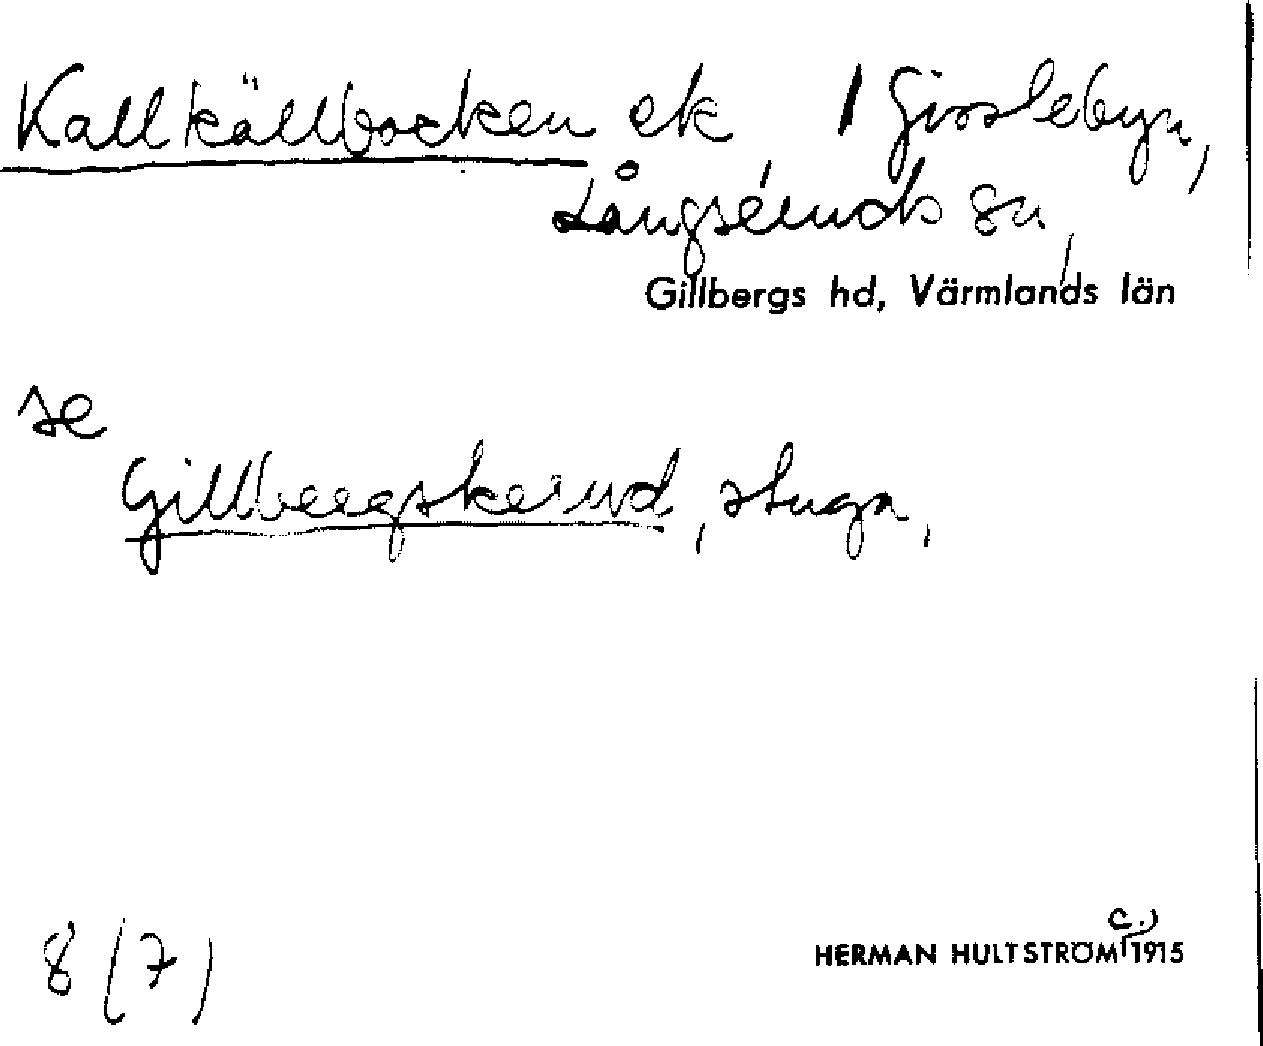 Kallkällbacken ek 1 Gisslebyn,
Långseruds sn,
Gillbergs hd, Värmlands län
se
Gillbergskerud, stuga,
8 (7)
c.)
HERMAN HULTSTRÖM 1915